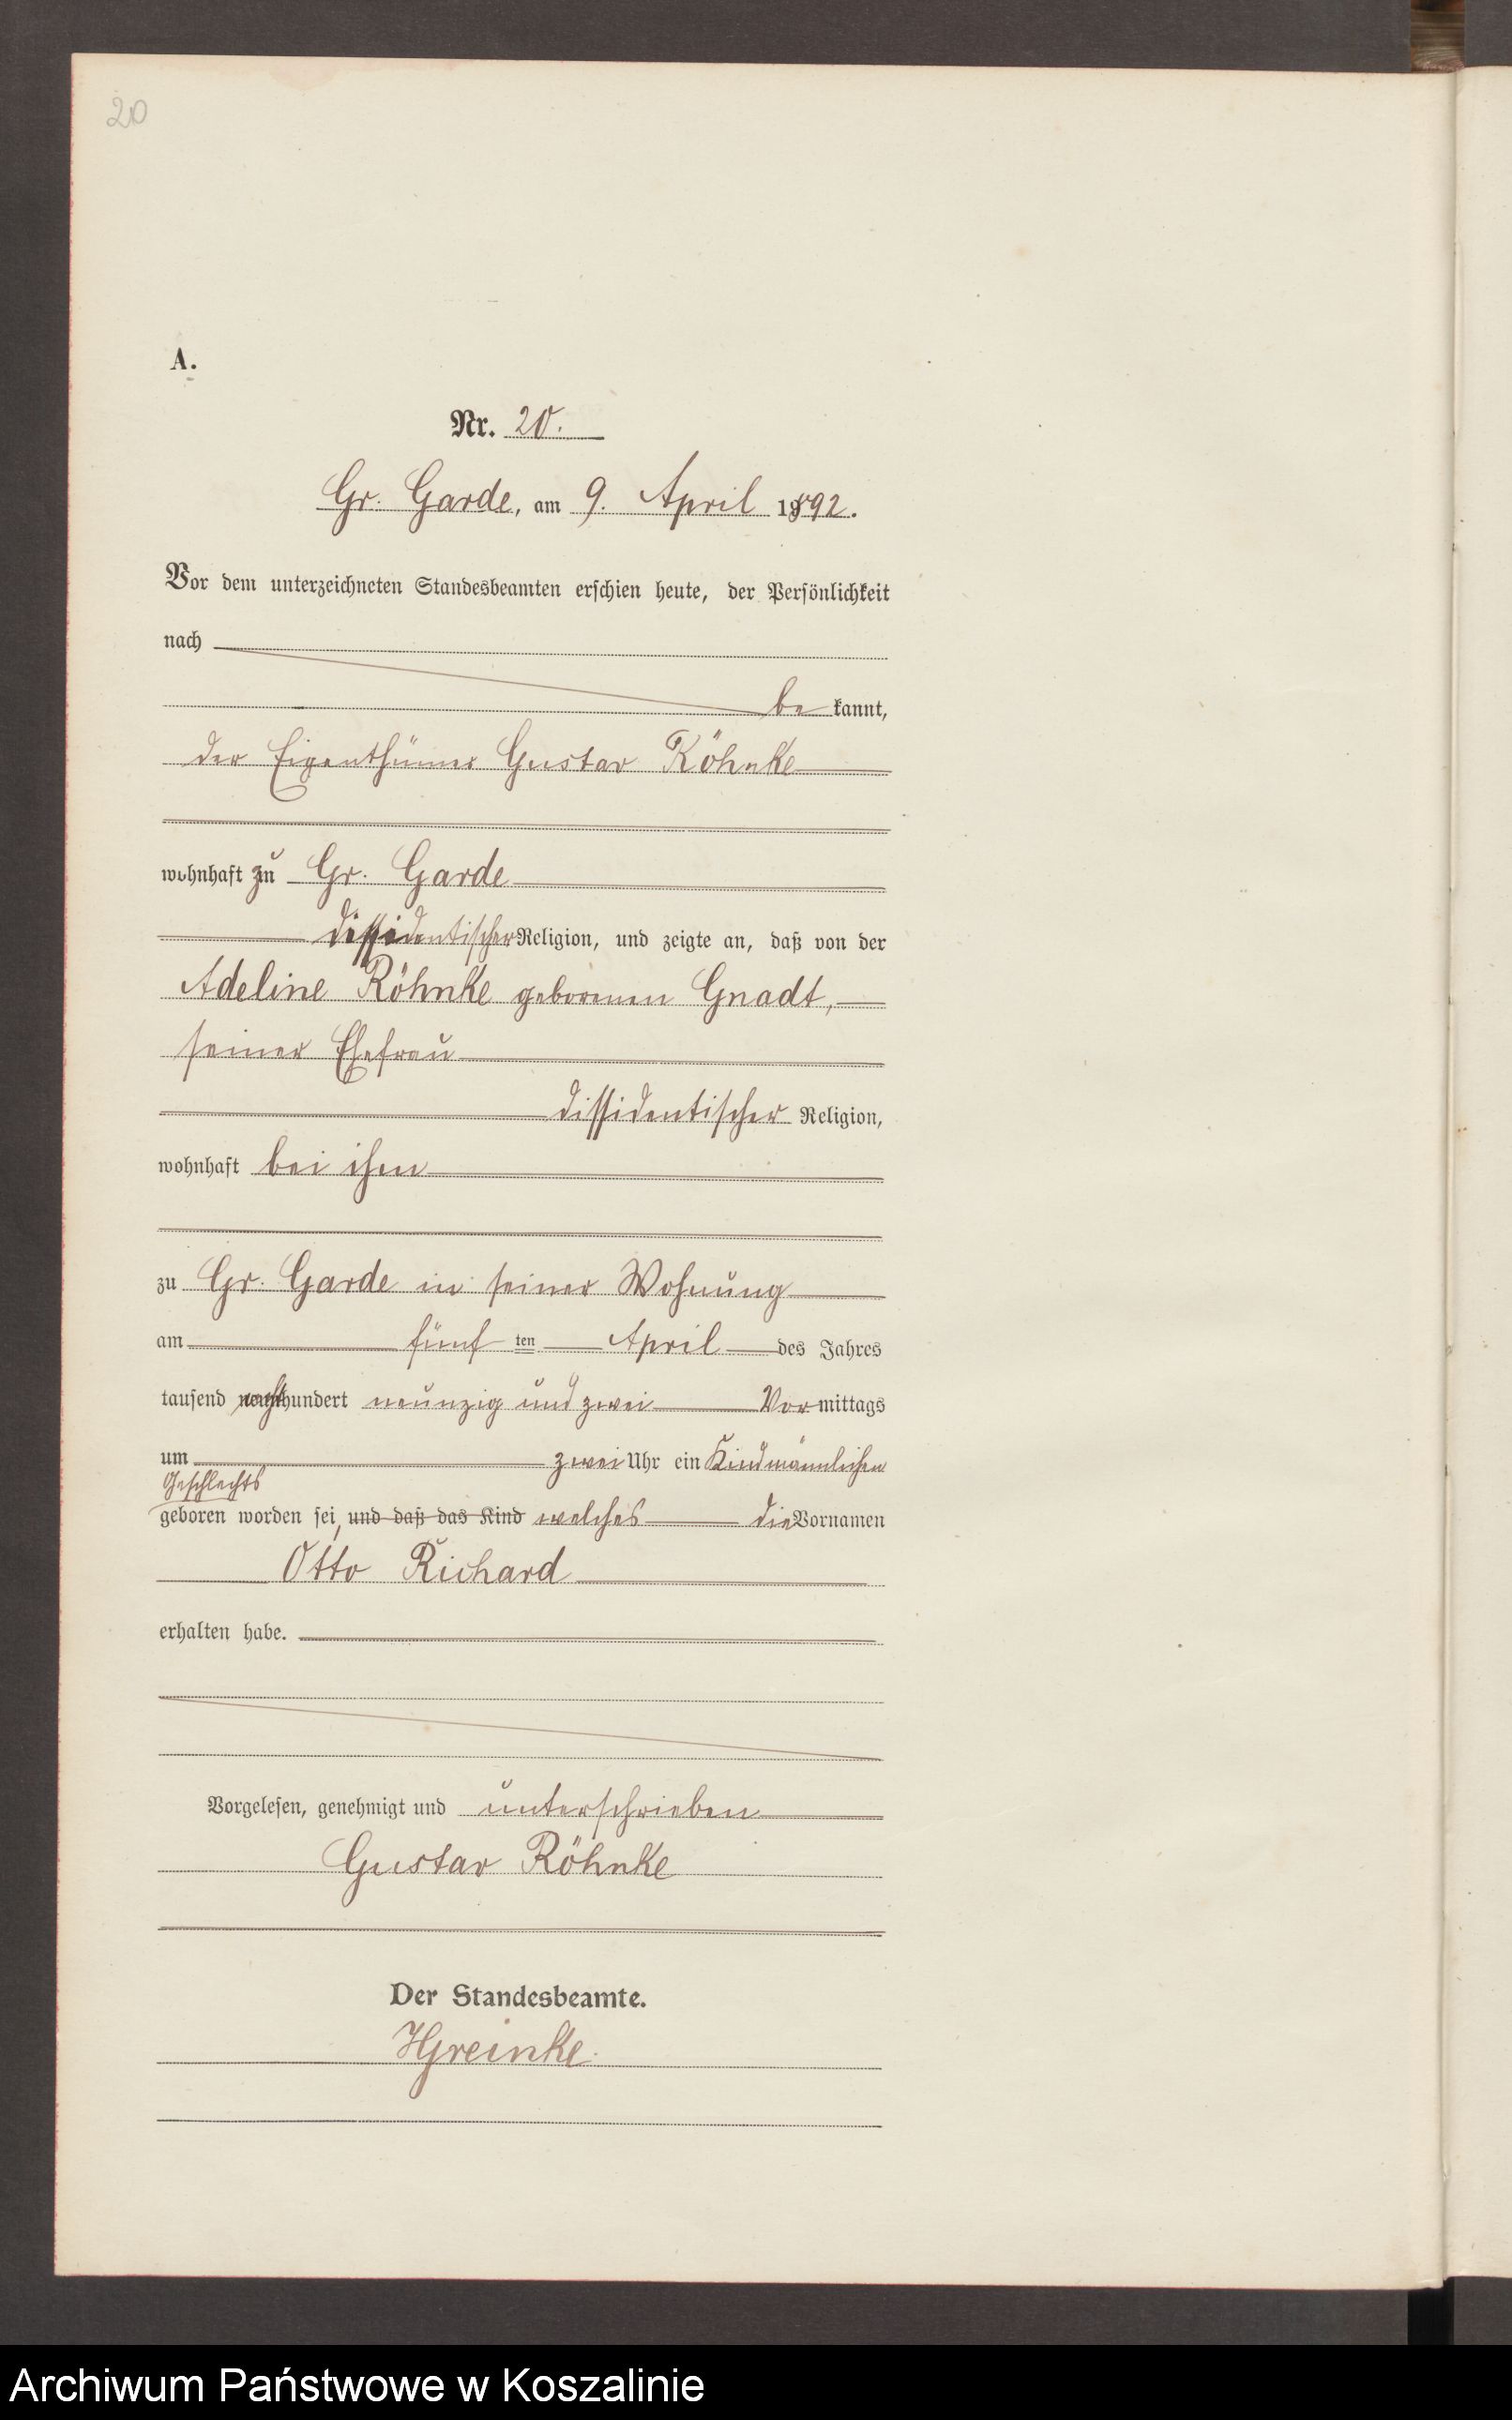 20
A.
Nr. 20.
Gr. Garde, am 9. April 1892.
Vor dem unterzeichneten Standesbeamten erschien heute, der Persönlichkeit
nach
be kannt,
der Eigenthümer Gustav Röhnke
wohnhaft zu Gr. Garde
dissidentischer Religion, und zeigte an, daß von der
Adeline Röhnke geborenen Gnadt,
seiner Ehefrau
dissidentischer Religion,
wohnhaft bei ihm
zu Gr. Garde in seiner Wohnung
am fünf ten April des Jahres
tausend achthundert neunzig und zwei Vormittags
um zwei Uhr ein Kind männlichen
Geschlechts
geboren worden sei, und daß das Kind welches die Vornamen
Otto Richard
erhalten habe.
Vorgelesen, genehmigt und unterschrieben
Gustav Röhnke
Der Standesbeamte.
HGreinke.
Archiwum Państwowe w Koszalinie